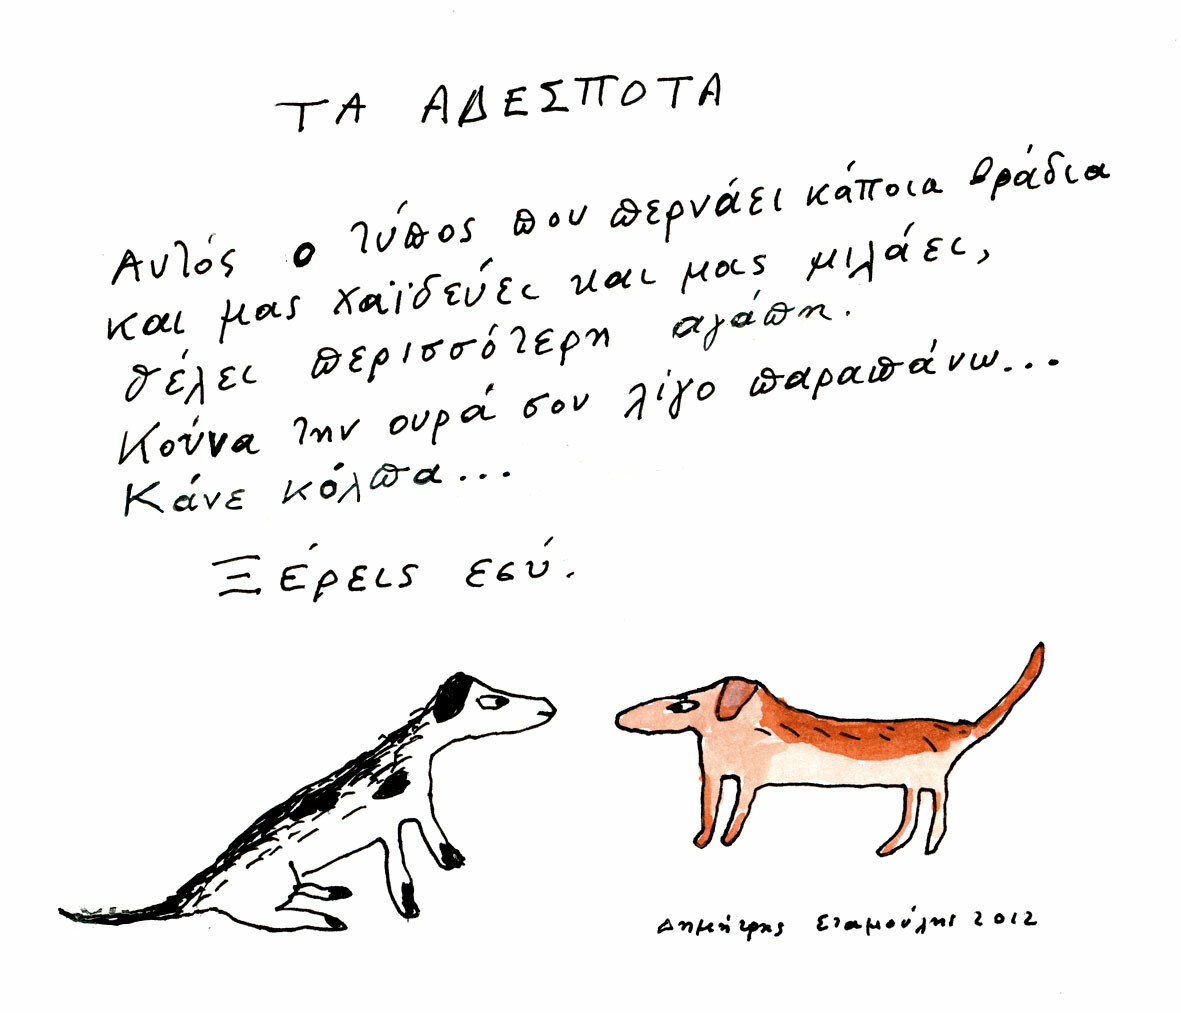 ΤΑ ΑΔΕΣΠΟΤΑ
Αυτός ο τύπος που περνάει κάποια βράδια
και μας χαϊδεύει και μας μιλάει,
θέλει περισσότερη αγάπη.
Κούνα την ουρά σου λίγο παραπάνω...
Κάνε κόλπα...
Ξέρεις εσύ.
Δημήτρης Σταμούλης 2012